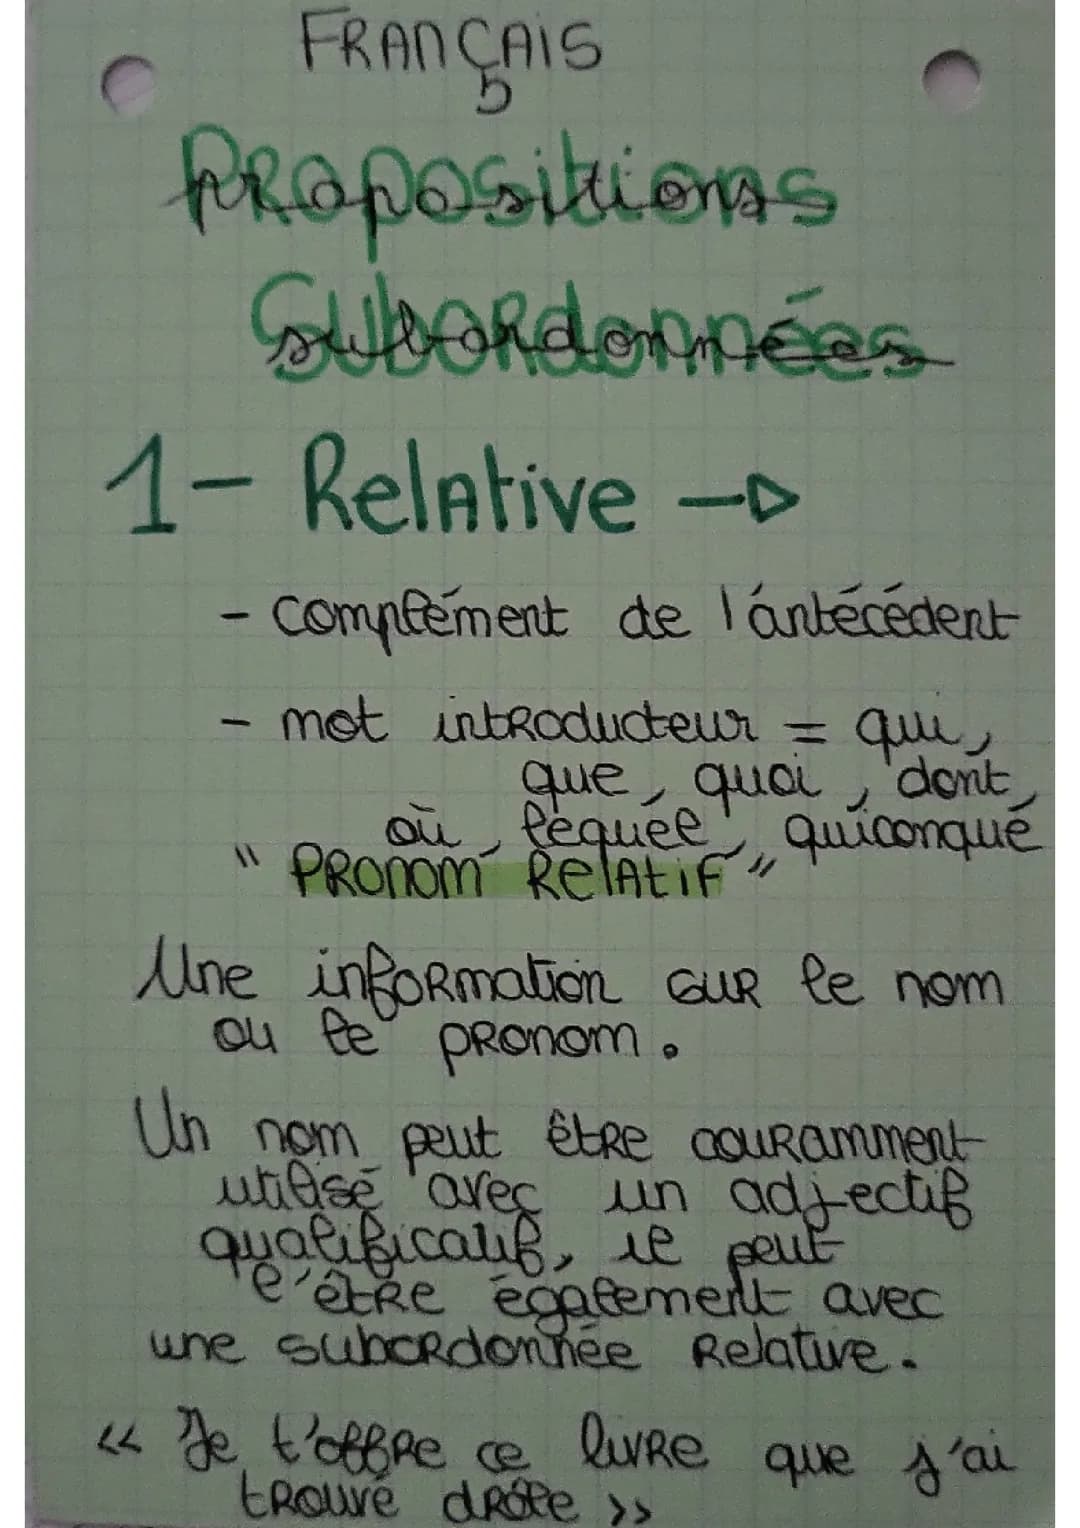 FRANÇAIS
PROPOSITIONS
SUBORDONNÉES
1- Relative →
- complément de l'antécédent
- mot introducteur = qui,
que, quoi, dont,
où, lequel, quiconque
" PRONOM RELATIF "
Une information SUR le nom
ou le pronom.
Un nom peut être couramment
utilisé avec un adjectif
qualificatif, il peut
l'être également avec
une subordonnée Relative.
<< Je t'offre ce livre que j'ai
trouvé drôle >>